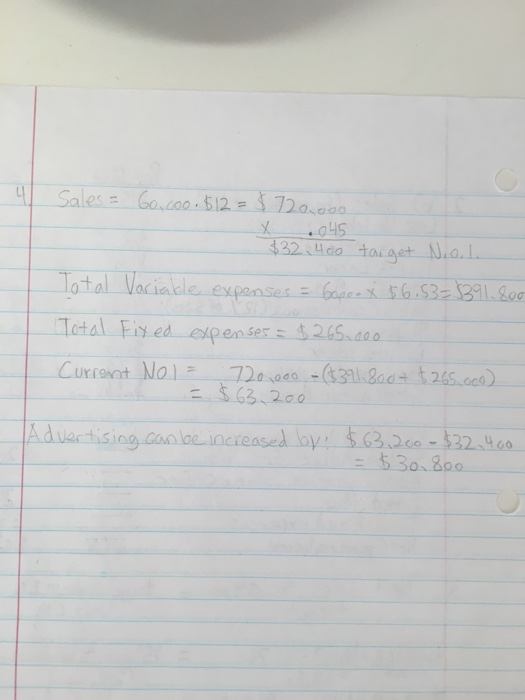 4. Sales = 60,000 · $12 = $ 720,000
x .045
$32,400 target N.O.I.
Total Variable expenses = 60,000 x $6.53 = $391,800
Total Fixed expenses = $265,000
Current NOI = 720,000 - ($391,800 + $265,000)
= $63,200
Advertising can be increased by: $63,200 - $32,400
= $30,800